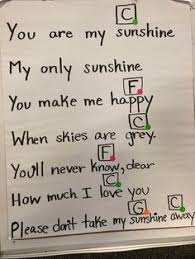 C
You are my sunshine
My only sunshine
F
You make me happy
C
When skies are grey.
F
You'll never know, dear
C
How much I love you
G C
Please don't take my sunshine away